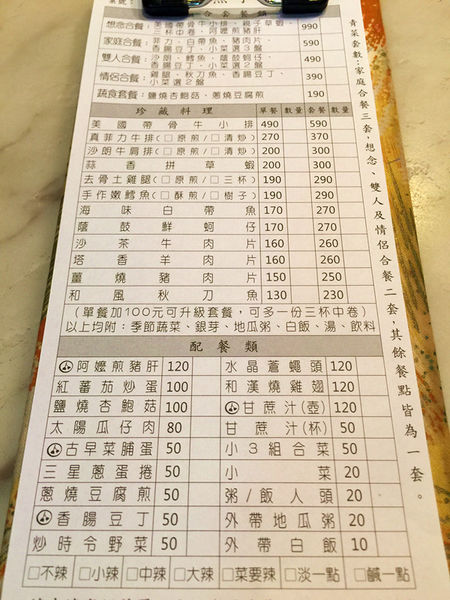 合套餐類
想念合餐:美國帶骨牛小排、親子草蝦、三杯中卷、阿嬤煎豬肝 990
家庭合餐:菲力、白帶魚、豬肉片、香腸豆丁、小菜選3盤 590
雙人合餐:沙朗、鱈魚、蔭鼓蚵仔、小菜選2盤 490
情侶合餐:雞腿、秋刀魚、香腸豆丁、小菜選2盤 390
蔬食套餐:鹽燒杏鮑菇、蔥燒豆腐煎 190
珍藏料理 單餐 數量 套餐 數量
美國帶骨牛小排 490 590
真菲力牛排(□原煎/□清炒) 270 370
沙朗牛肩排(□原煎/□清炒) 200 300
蒜香拼草蝦 200 300
去骨土雞腿(□原煎/□三杯) 190 290
手作嫩鱈魚(□酥煎/□樹子) 190 290
海味白帶魚 170 270
蔭鼓鮮蚵仔 170 270
沙茶牛肉片 160 260
塔香羊肉片 160 260
薑燒豬肉片 150 250
和風秋刀魚 130 230
(單餐加100元可升級套餐,可多一份三杯中卷)
以上均附:季節蔬菜、銀芽、地瓜粥、白飯、湯、飲料
配餐類
阿嬤煎豬肝 120 水晶蒼蠅頭 120
紅蕃茄炒蛋 100 和漢燒雞翅 120
鹽燒杏鮑菇 100 甘蔗汁(壺) 120
太陽瓜仔肉 80 甘蔗汁(杯) 50
古早菜脯蛋 50 小3組合菜 50
三星蔥蛋捲 50 小菜 20
蔥燒豆腐煎 50 粥/飯人頭 20
香腸豆丁 50 外帶地瓜粥 20
炒時令野菜 50 外帶白飯 10
□不辣 □小辣 □中辣 □大辣 □菜要辣 □淡一點 □鹹一點
青菜套數:家庭合餐三套,想念、雙人及情侶合餐二套,其餘餐點皆為一套。